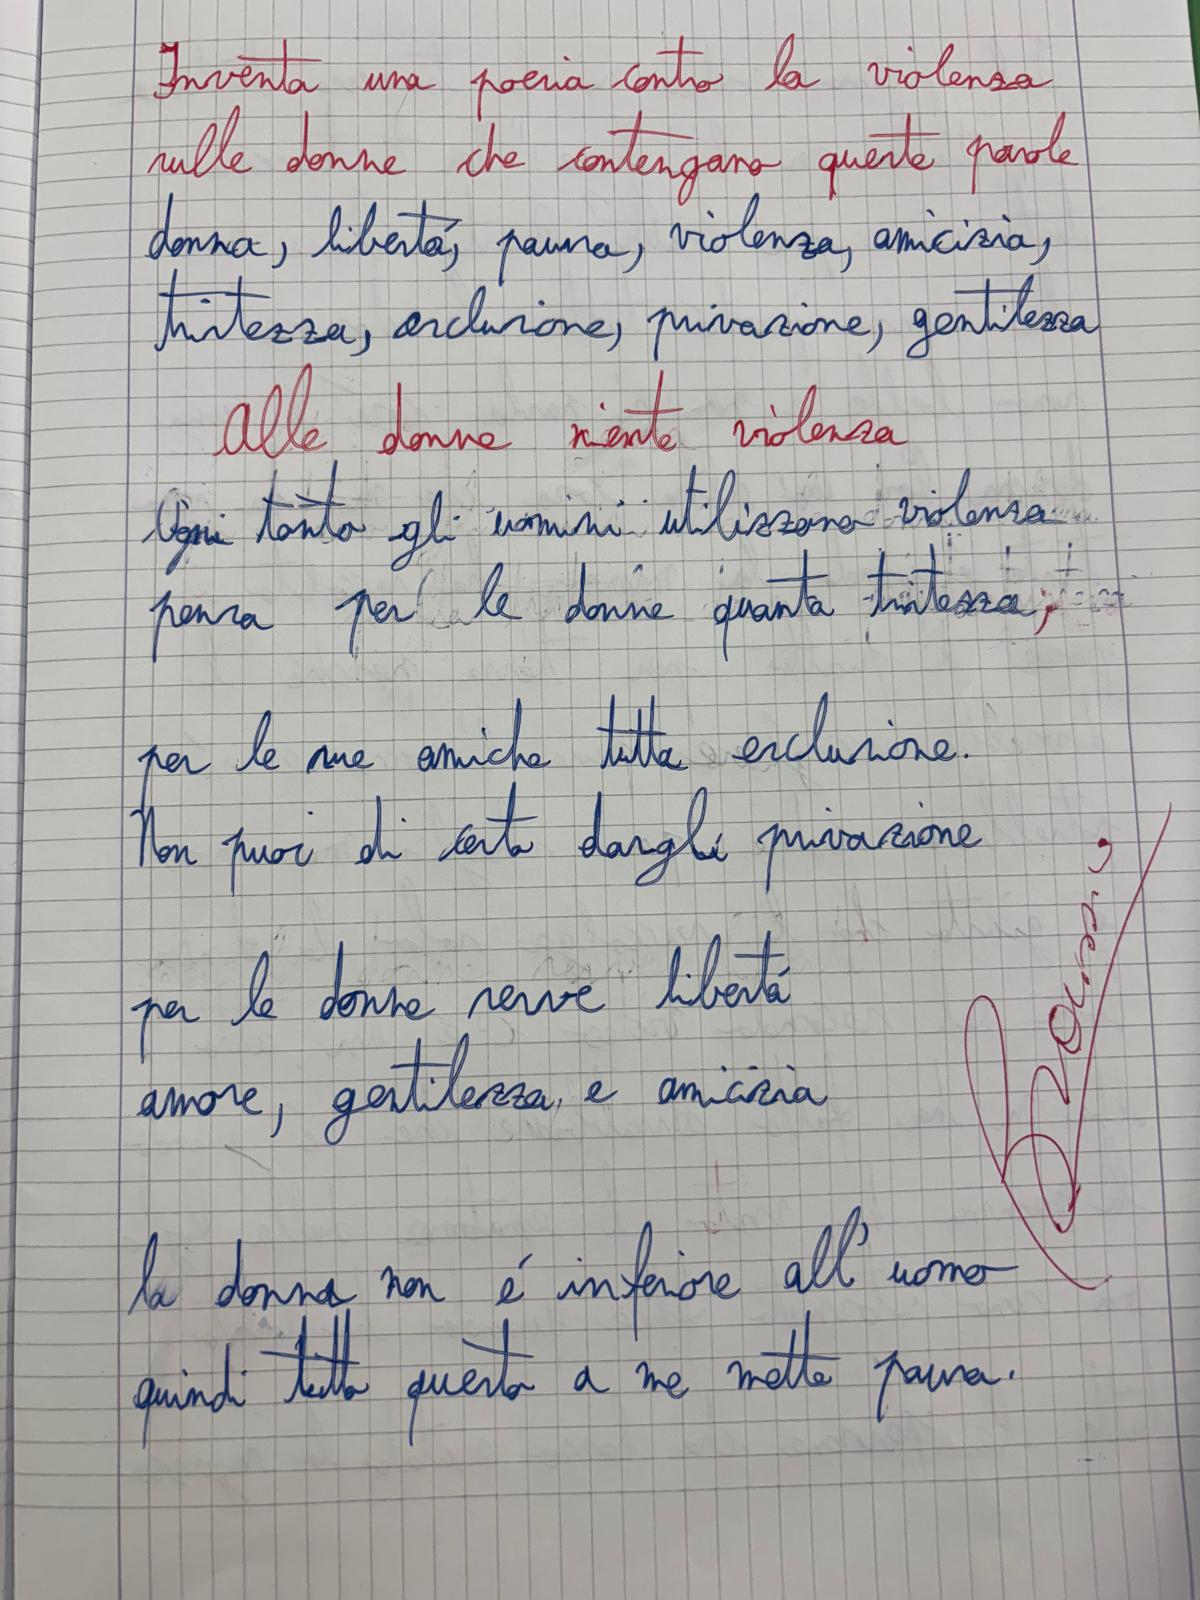 Inventa una poesia contro la violenza
sulle donne che contengano queste parole
donna, libertá, paura, violenza, amicizia,
tristezza, esclusione, privazione, gentilezza
Alle donne niente violenza
Ogni tanto gli uomini utilizzano violenza
pensa per le donne quanta tristezza;
per le sue amiche tutta esclusione.
Non puoi di certo dargli privazione
per le donne serve libertá
amore, gentilezza e amicizia
la donna non é inferiore all'uomo
quindi tutto questo a me mette paura.